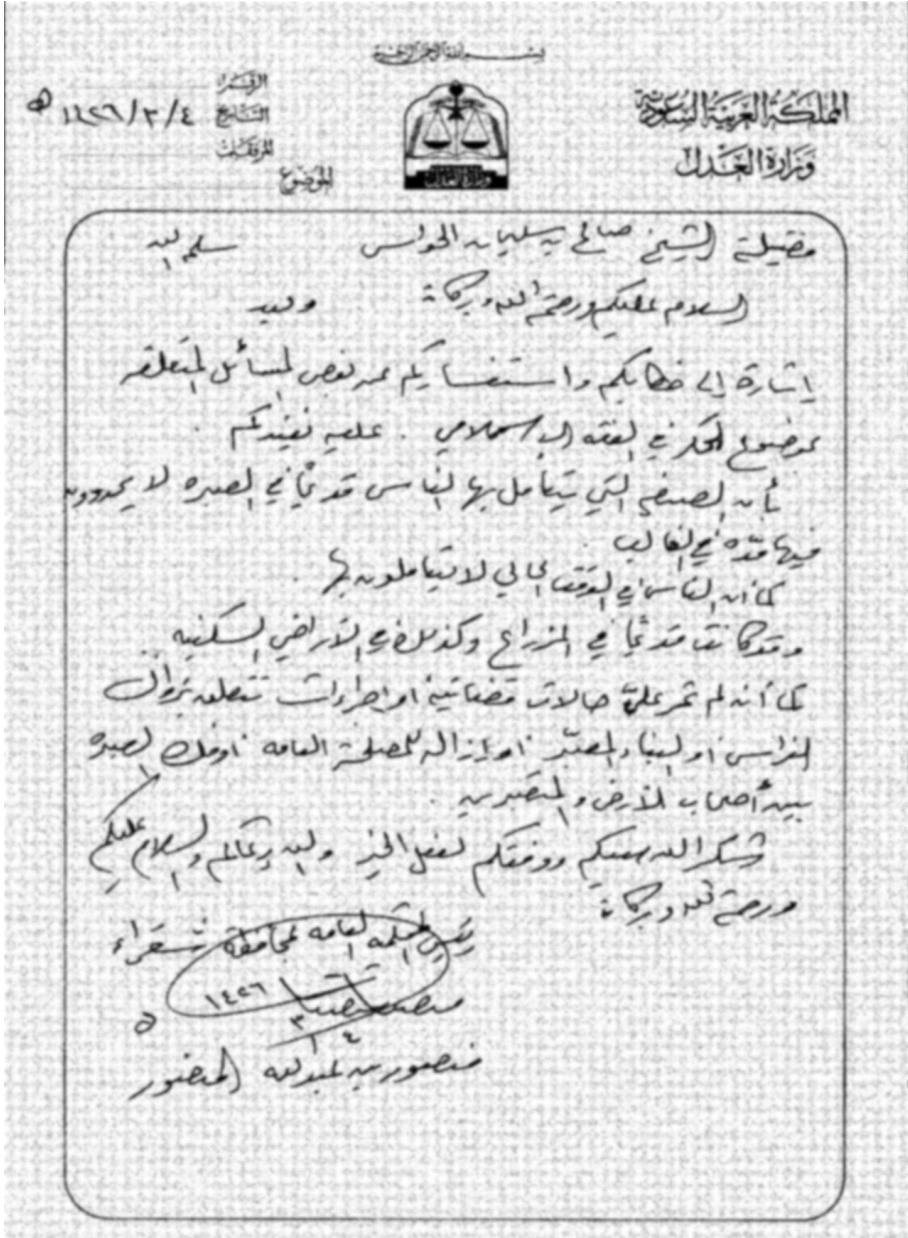 بسم الله الرحمن الرحيم
المملكة العربية السعودية
وزارة العدل
الرقم
التاريخ ١٤٢٦/٣/٤ ه
المرفقات
الموضوع
وزارة العدل
فضيلة الشيخ صالح بن سليمان الحويس سلمه الله
السلام عليكم ورحمة الله وبركاته وبعد
إشارة إلى خطابكم واستفساركم عن بعض المسائل المتعلقه
بموضوع الحكر في الفقه الإسلامي . عليه نفيدكم .
بأن الصيغه التي يتعامل بها الناس قديماً في الصبره لا يحددون
فيها مده في الغالب
كما أن الناس في الوقت الحالي لا يتعاملون بها .
وقد كانت قديماً في المزراع وكذلك في الأراضي السكنيه
كما أنه لم تمر عليّ حالات قضائية او إجراءات تتعلق بزوال
الغراس او البناء المصبّر او إزاله للمصلحة العامه أو فك الصبره
بين أصحاب الأرض والمتصبرين .
شكر الله سعيكم ووفقكم لفعل الخير والله يرعاكم والسلام عليكم
ورحمة الله وبركاته
رئيس المحكمه العامه بمحافظة شقراء
١٤٢٦ ه
٣
٤
منصور بن عبدالله المنصور